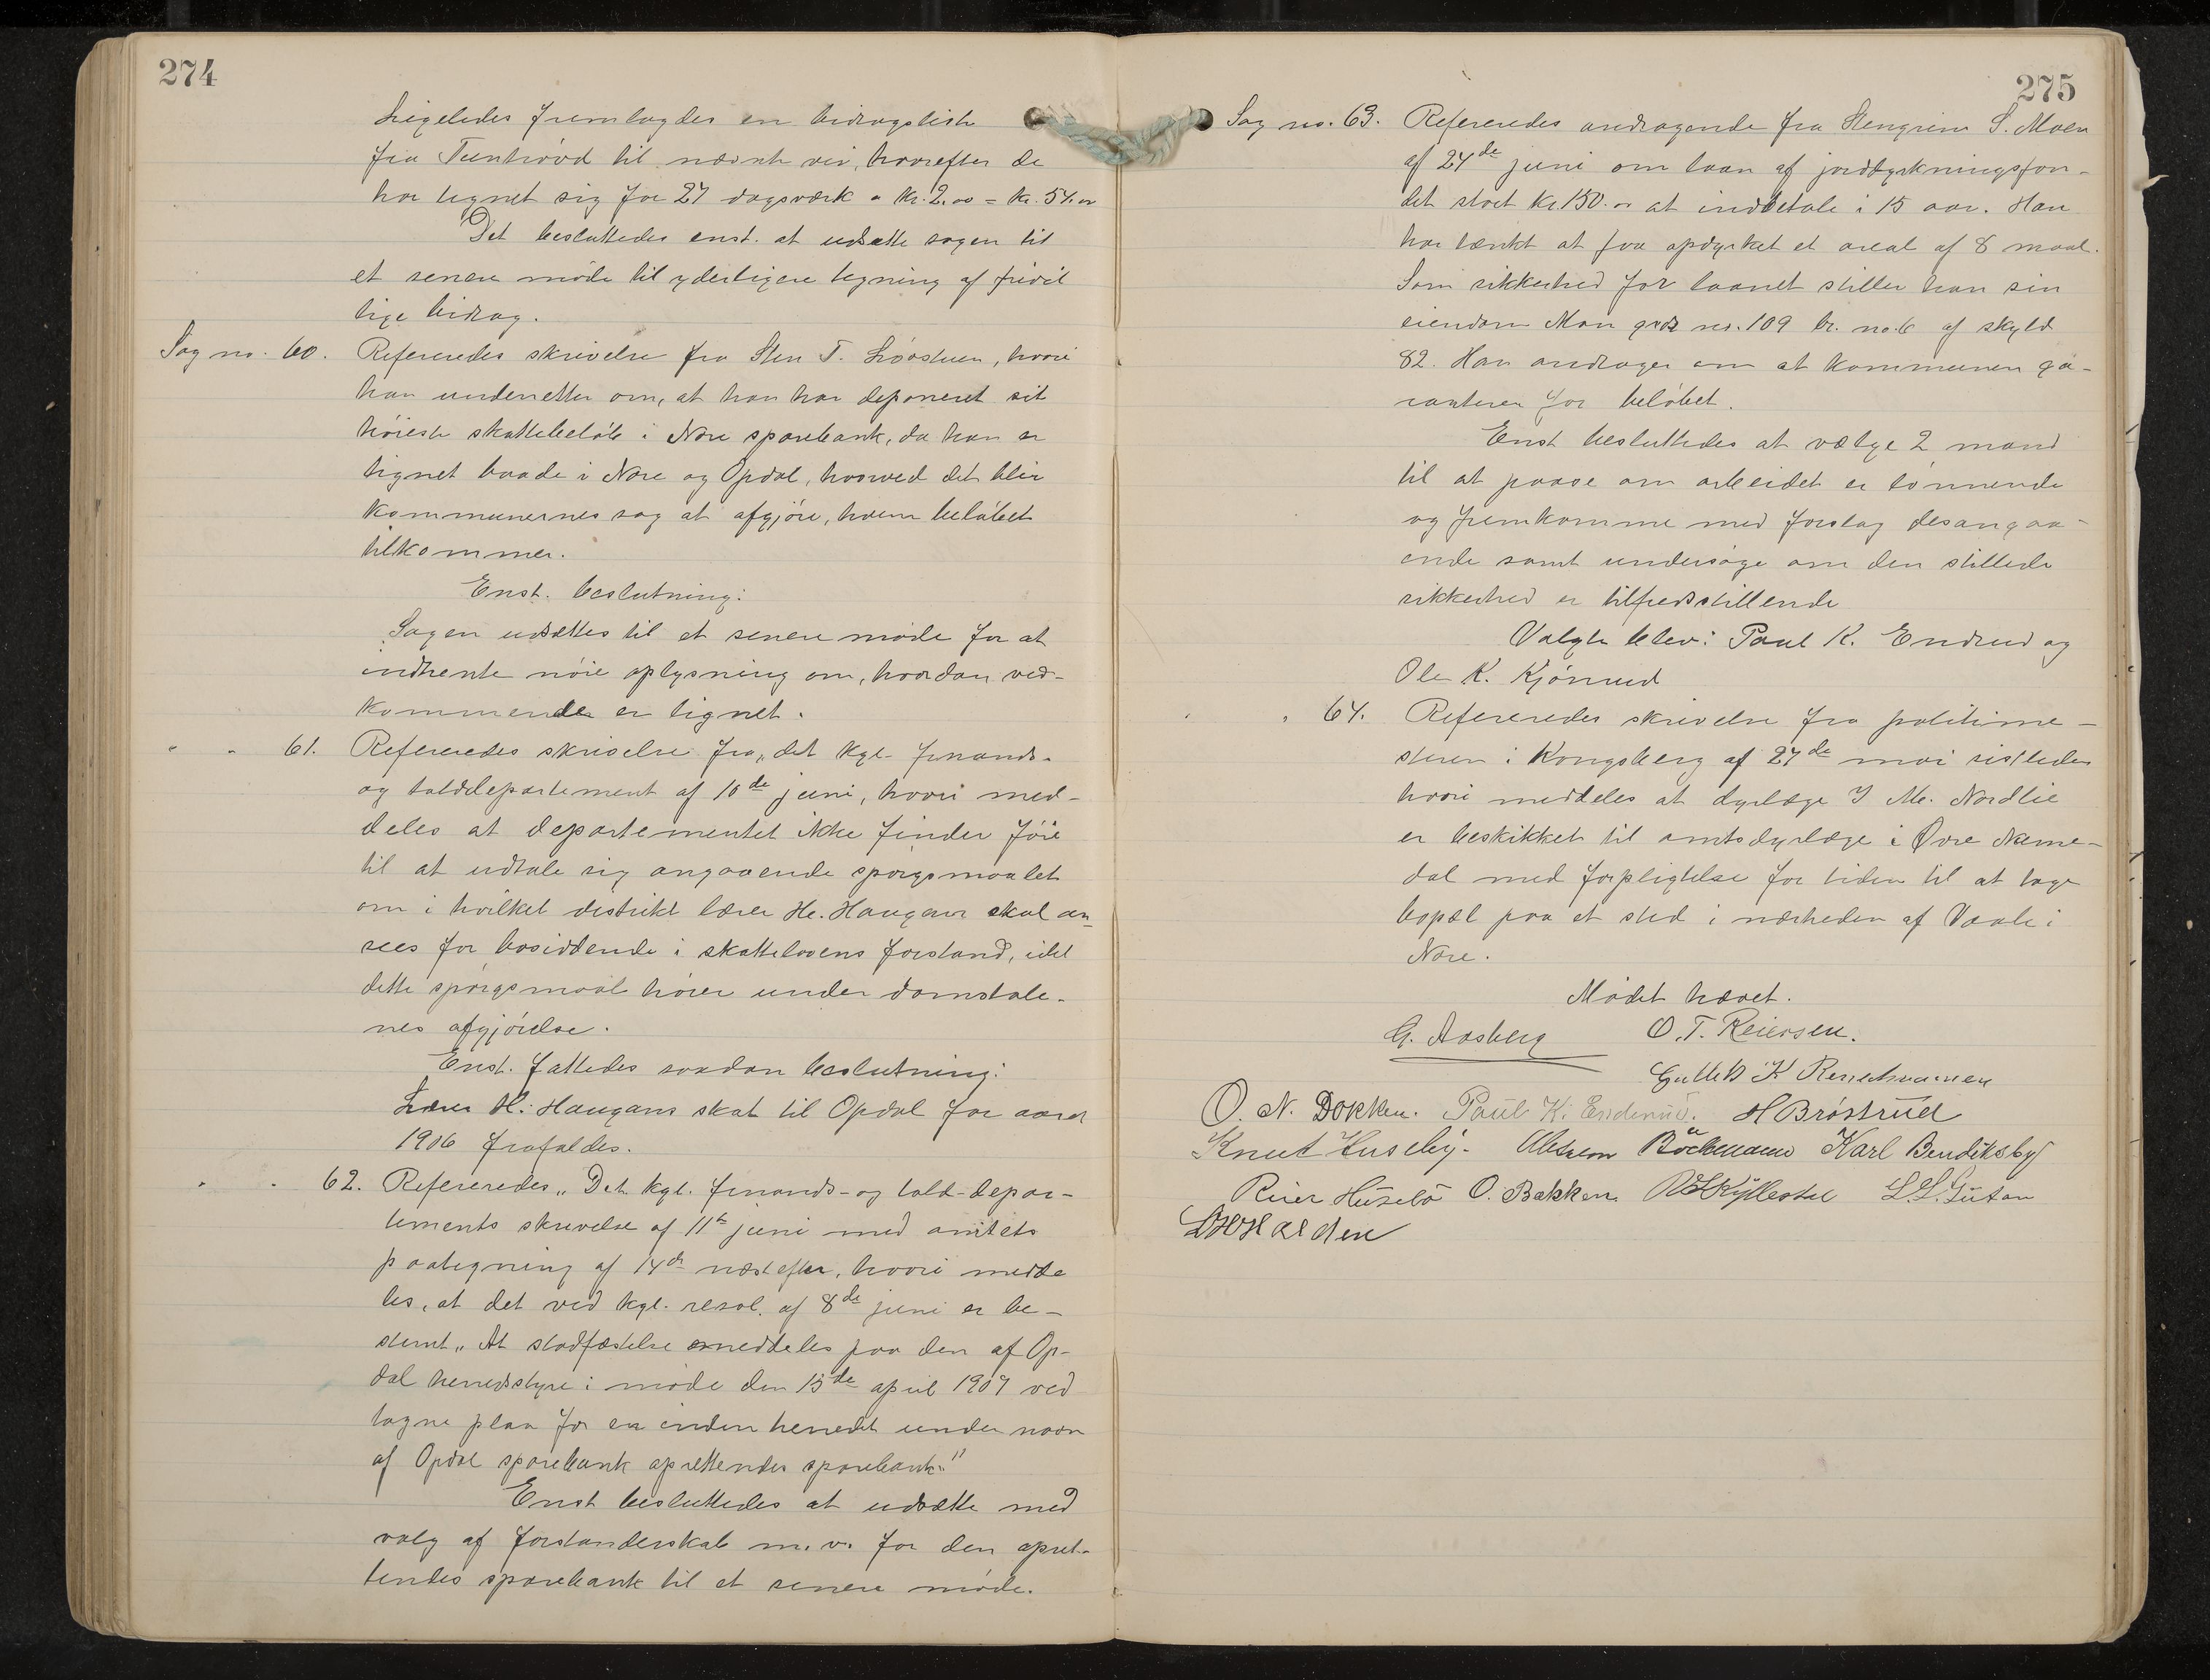 274
Ligeledes fremlagdes en bidragsliste
fra Tunhovd til nævnte vei, hvorefter de
har tegnet sig for 27 dagsværk a kr. 2.00 = kr. 54.00
Det besluttedes enst. at udsætte sagen til
et senere møde til yderligere tegning af frivil
lige bidrag.
Sag no. 60. Refereredes skrivelse fra Sten T. , hvori
han underretter om, at han har deponeret sit
høieste skattebeløb i Nore sparebank, da han er
lignet baade i Nore og Opdal, hvorved det blir
kommunernes sag at afgjøre, hvem beløbet
tilkommer.
Enst. beslutning:
Sagen udsættes til et senere møde for at
indhente nøie oplysning om, hvordan ved-
kommende er lignet.
" " 61. Refereredes skrivelse fra „det kgl. finands-
og tolddepartement af 10de juni, hvori med-
deles at departementet ikke finder føie
til at udtale sig angaaende spørgsmaalet
om i hvilket distrikt lærer H. Haugan skal an-
sees for bosiddende i skattelovens forstand, idet
dette spørgsmaal hører under domstole-
nes afgjørelse.
Enst. fattedes saadan beslutning:
Lærer H. Haugans skat til Opdal for aaret
1906 frafaldes.
" " 62. Refereredes „Det kgl. finands- og told-depar-
tements skrivelse af 11te juni med amtets
paategning af 14de næstefter, hvori medde
les, at det ved kgl. resol. af 8de juni er be-
stemt „At stadfæstelse meddeles paa den af Op-
dal herredsstyre i møde den 15de april 1907 ved
tagne plan for en inden herredet under navn
af Opdal sparebank oprettendes sparebank."
Enst besluttedes at udsætte med
valg af forstanderskab m.v. for den opret-
tendes sparebank til et senere møde.
275
Sag no. 63. Refereredes andragende fra Stengrim S. Moen
af 24de juni om laan af jorddyrkningsfon-
det stort kr. 150.00 at indbetale i 15 aar. Han
har tænkt at faa opdyrket et areal af 8 maal.
Som sikkerhed for laanet stiller han sin
eiendom Moen grds no. 109 br. no. 6 af skyld
82. Han andrager om at kommunen ga-
ranterer for beløbet.
Enst besluttedes at vælge 2 mand
til at paase om arbeidet er lønnende
og fremkomme med forslag desangaa-
ende samt undersøge om den stillede
sikkerhed er tilfredsstillende
Valgte blev: Paul K. Enderud og
Ole K. Kjønnud
" " 64. Refereredes skrivelse fra politime-
steren i Kongsberg af 27de mai sistleden
hvori meddeles at dyrlæge J M. Nordlie
er beskikket til amtsdyrlæge i Øvre Nume-
dal med forpligtelse for tiden til at tage
bopæl paa et sted i nærheden af Vaale i
Nore.
Mødet hævet.
G. Aasberg O. T. Reiersen.
Gulleik K
O. N. Dokken. Paul K. Enderud. H Brøstrud
Knut Huseby. Böckmann Karl Bendiksby
Reier Husebø O. Bakken
LHHalden